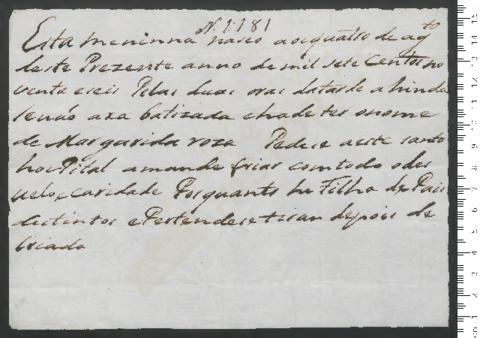 N. 1181
Esta meninna naseo aos quatro de agto
deste Prezente anno de mil sete Centos no
venta e seis Pelas duas oras da tarde a hinda
se não axa batizada e hade ter o nome
de Margarida roza Pedese a este santo
hospital a mande Criar com todo o des
velo, e caridade Porquanto he Filha de Pais
distintos e Pertendese tirar depois de
Criada